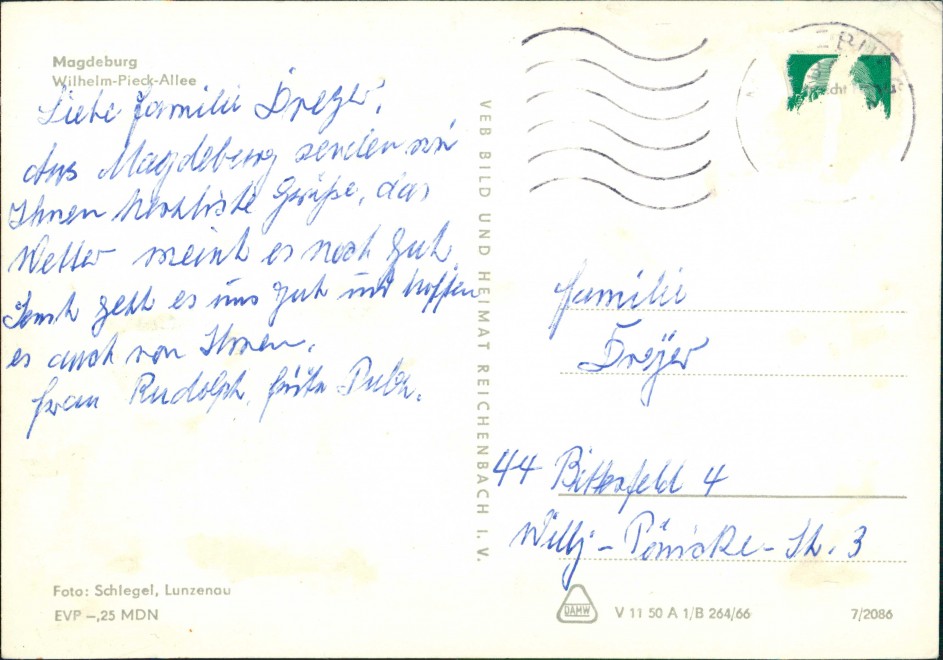 Magdeburg
Wilhelm-Pieck-Allee
Liebe Familie Dreyer!
Aus Magdeburg senden wir
Ihnen herzliste Grüße, das
Wetter meint es noch gut
Sonst geht es uns gut und hoffen
es auch von Ihnen.
Frau Rudolph,
Foto: Schlegel, Lunzenau
EVP –,25 MDN
VEB BILD UND HEIMAT REICHENBACH I. V.
Familie
Dreyer
44 Bitterfeld 4
Willj-Pönicke-Str. 3
DAMW
V 11 50 A 1/B 264/66
7/2086